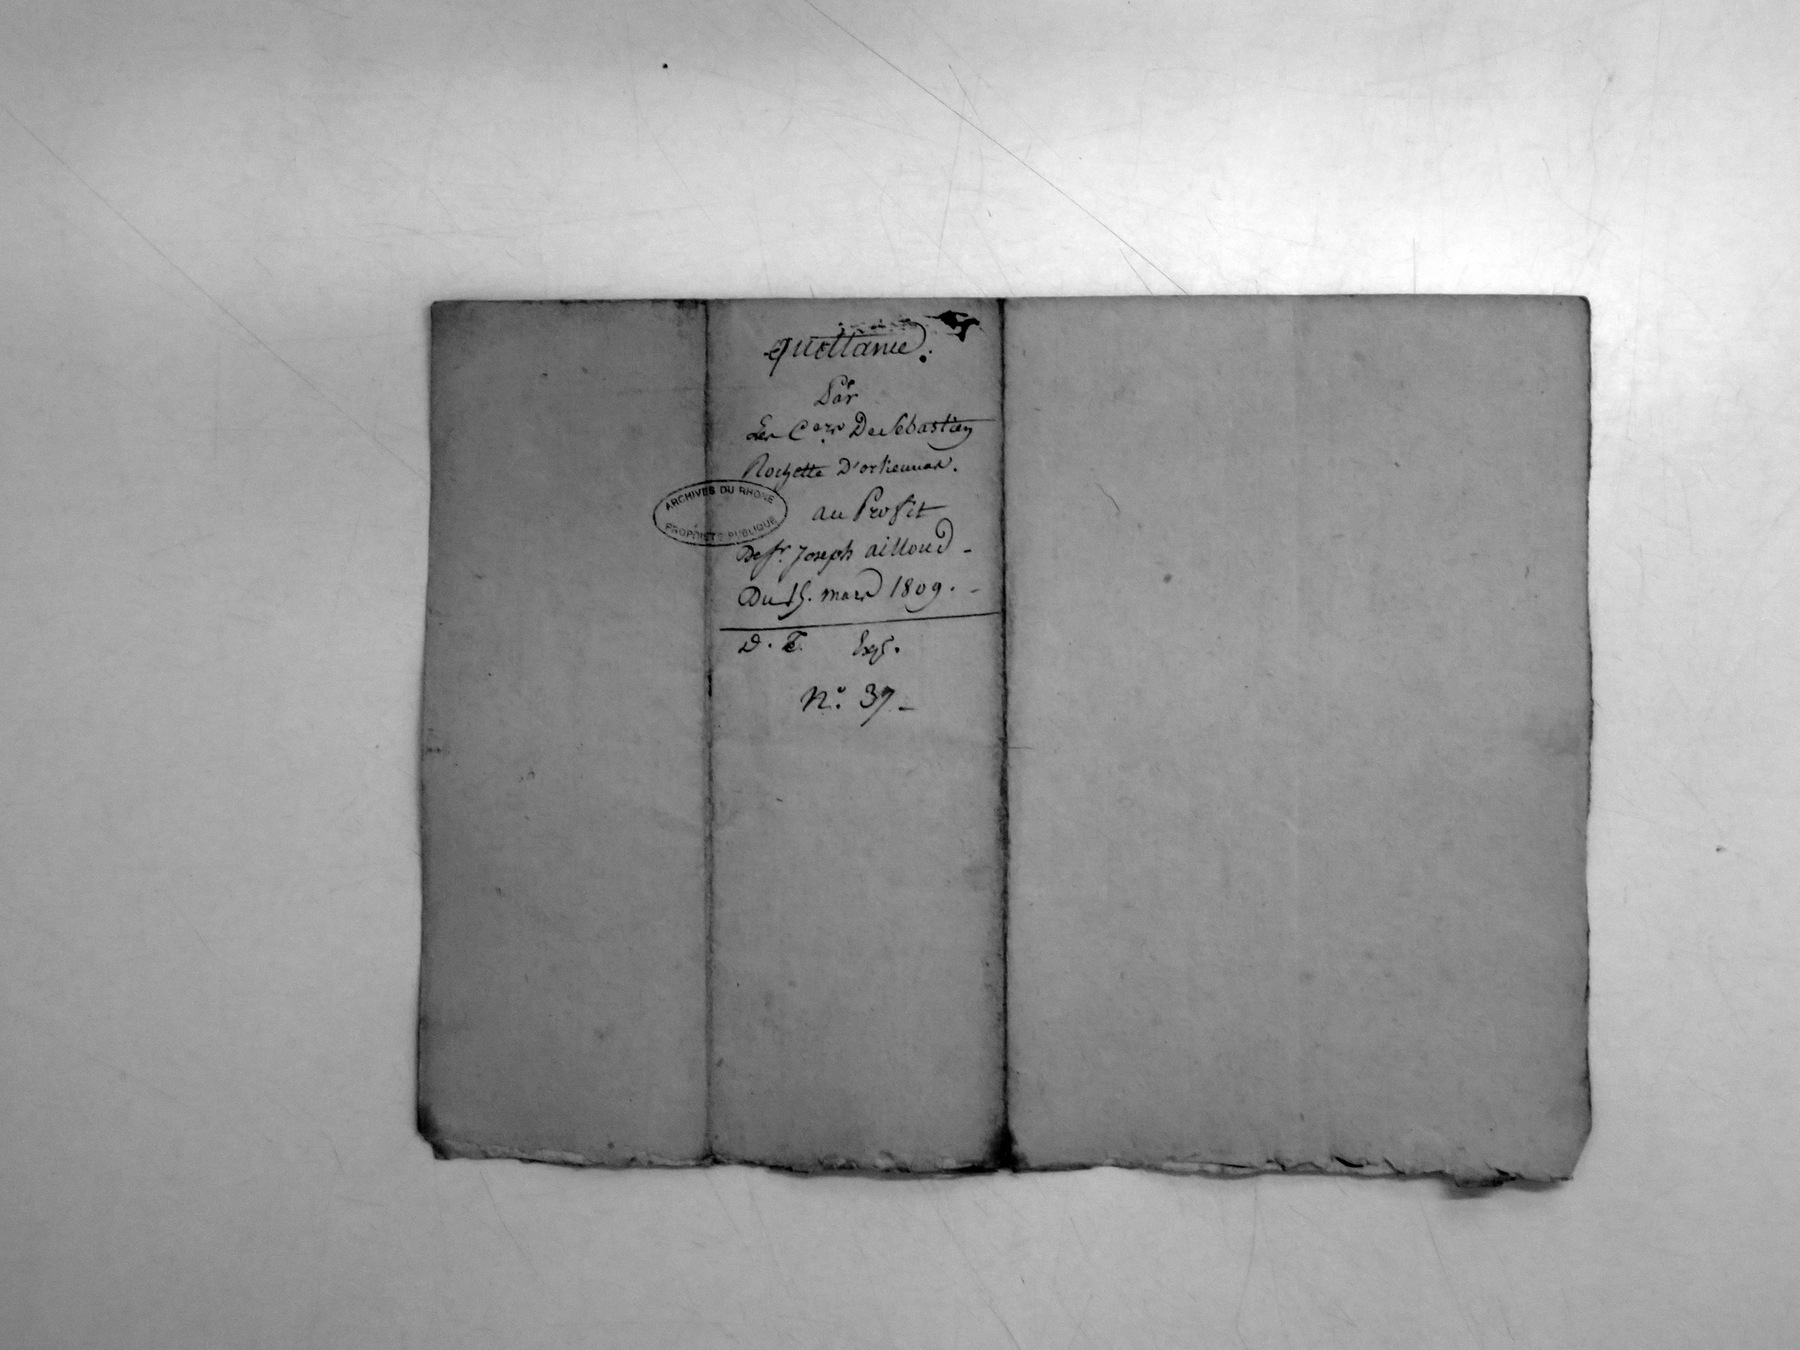 Quittance.
Par
Les C.ers De Sebastien
Rochette D'orlienas.
ARCHIVES DU RHONE
PROPRIÉTÉ PUBLIQUE
au Profit
De Sr. Joseph ailloud -
Du 15. mars 1809. -
D. T. Exp.
N.o 37 -